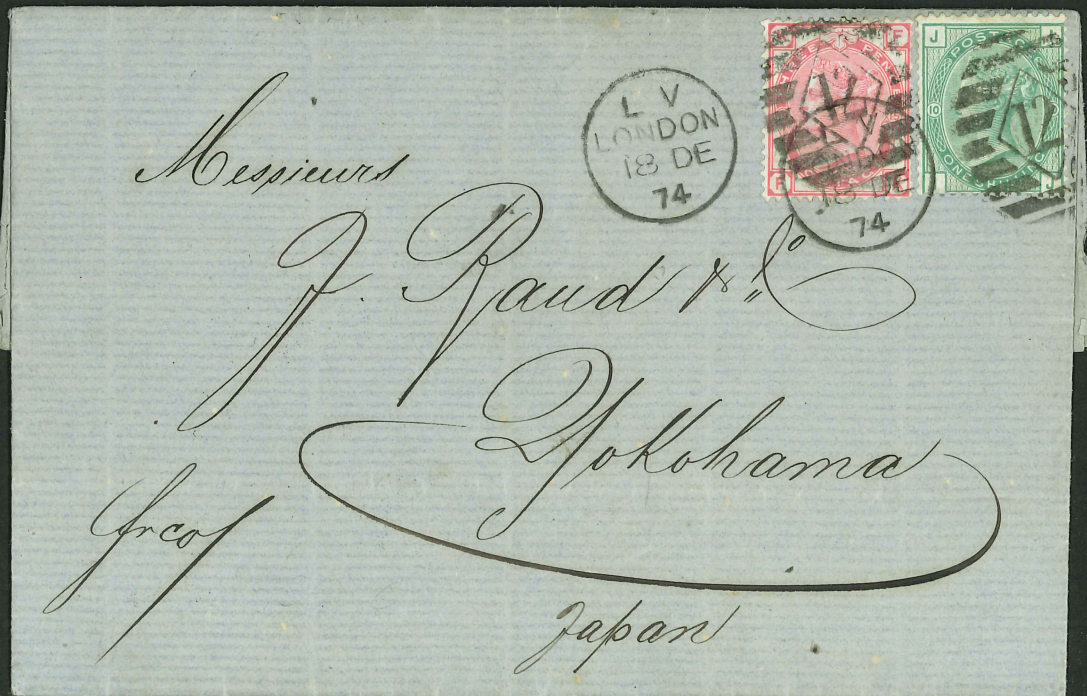 L V
LONDON
18 DE
74
F
THREE PENCE
12
LONDON
18 DE
74
F
J
POSTAGE
10
12
ONE SHILLING
J
Messieurs
J. Raud & Co
Yokohama
frco/
Japan